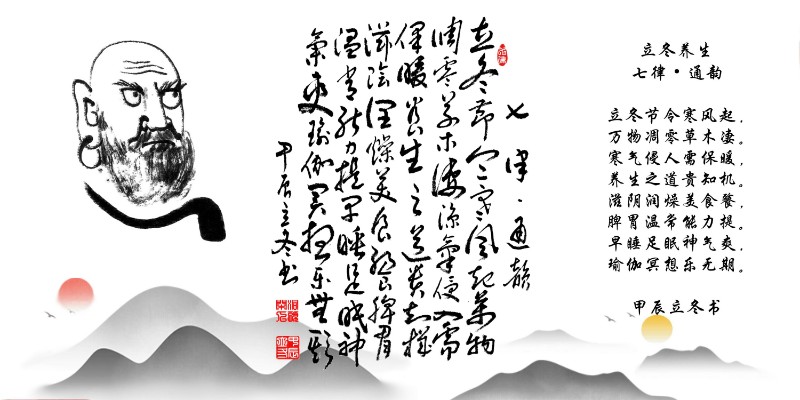 七律·通韵
立冬节令寒风起万物
凋零草木凄凉氣侵人需
保暖养生之道贵知機
滋陰润燥美食餐脾胃
温常能力提早睡足眠神
氣爽瑜伽冥想乐無期
甲辰立冬书
立冬养生
七律·通韵
立冬节令寒风起,
万物凋零草木凄。
寒气侵人需保暖,
养生之道贵知机。
滋阴润燥美食餐,
脾胃温常能力提。
早睡足眠神气爽,
瑜伽冥想乐无期。
甲辰立冬书